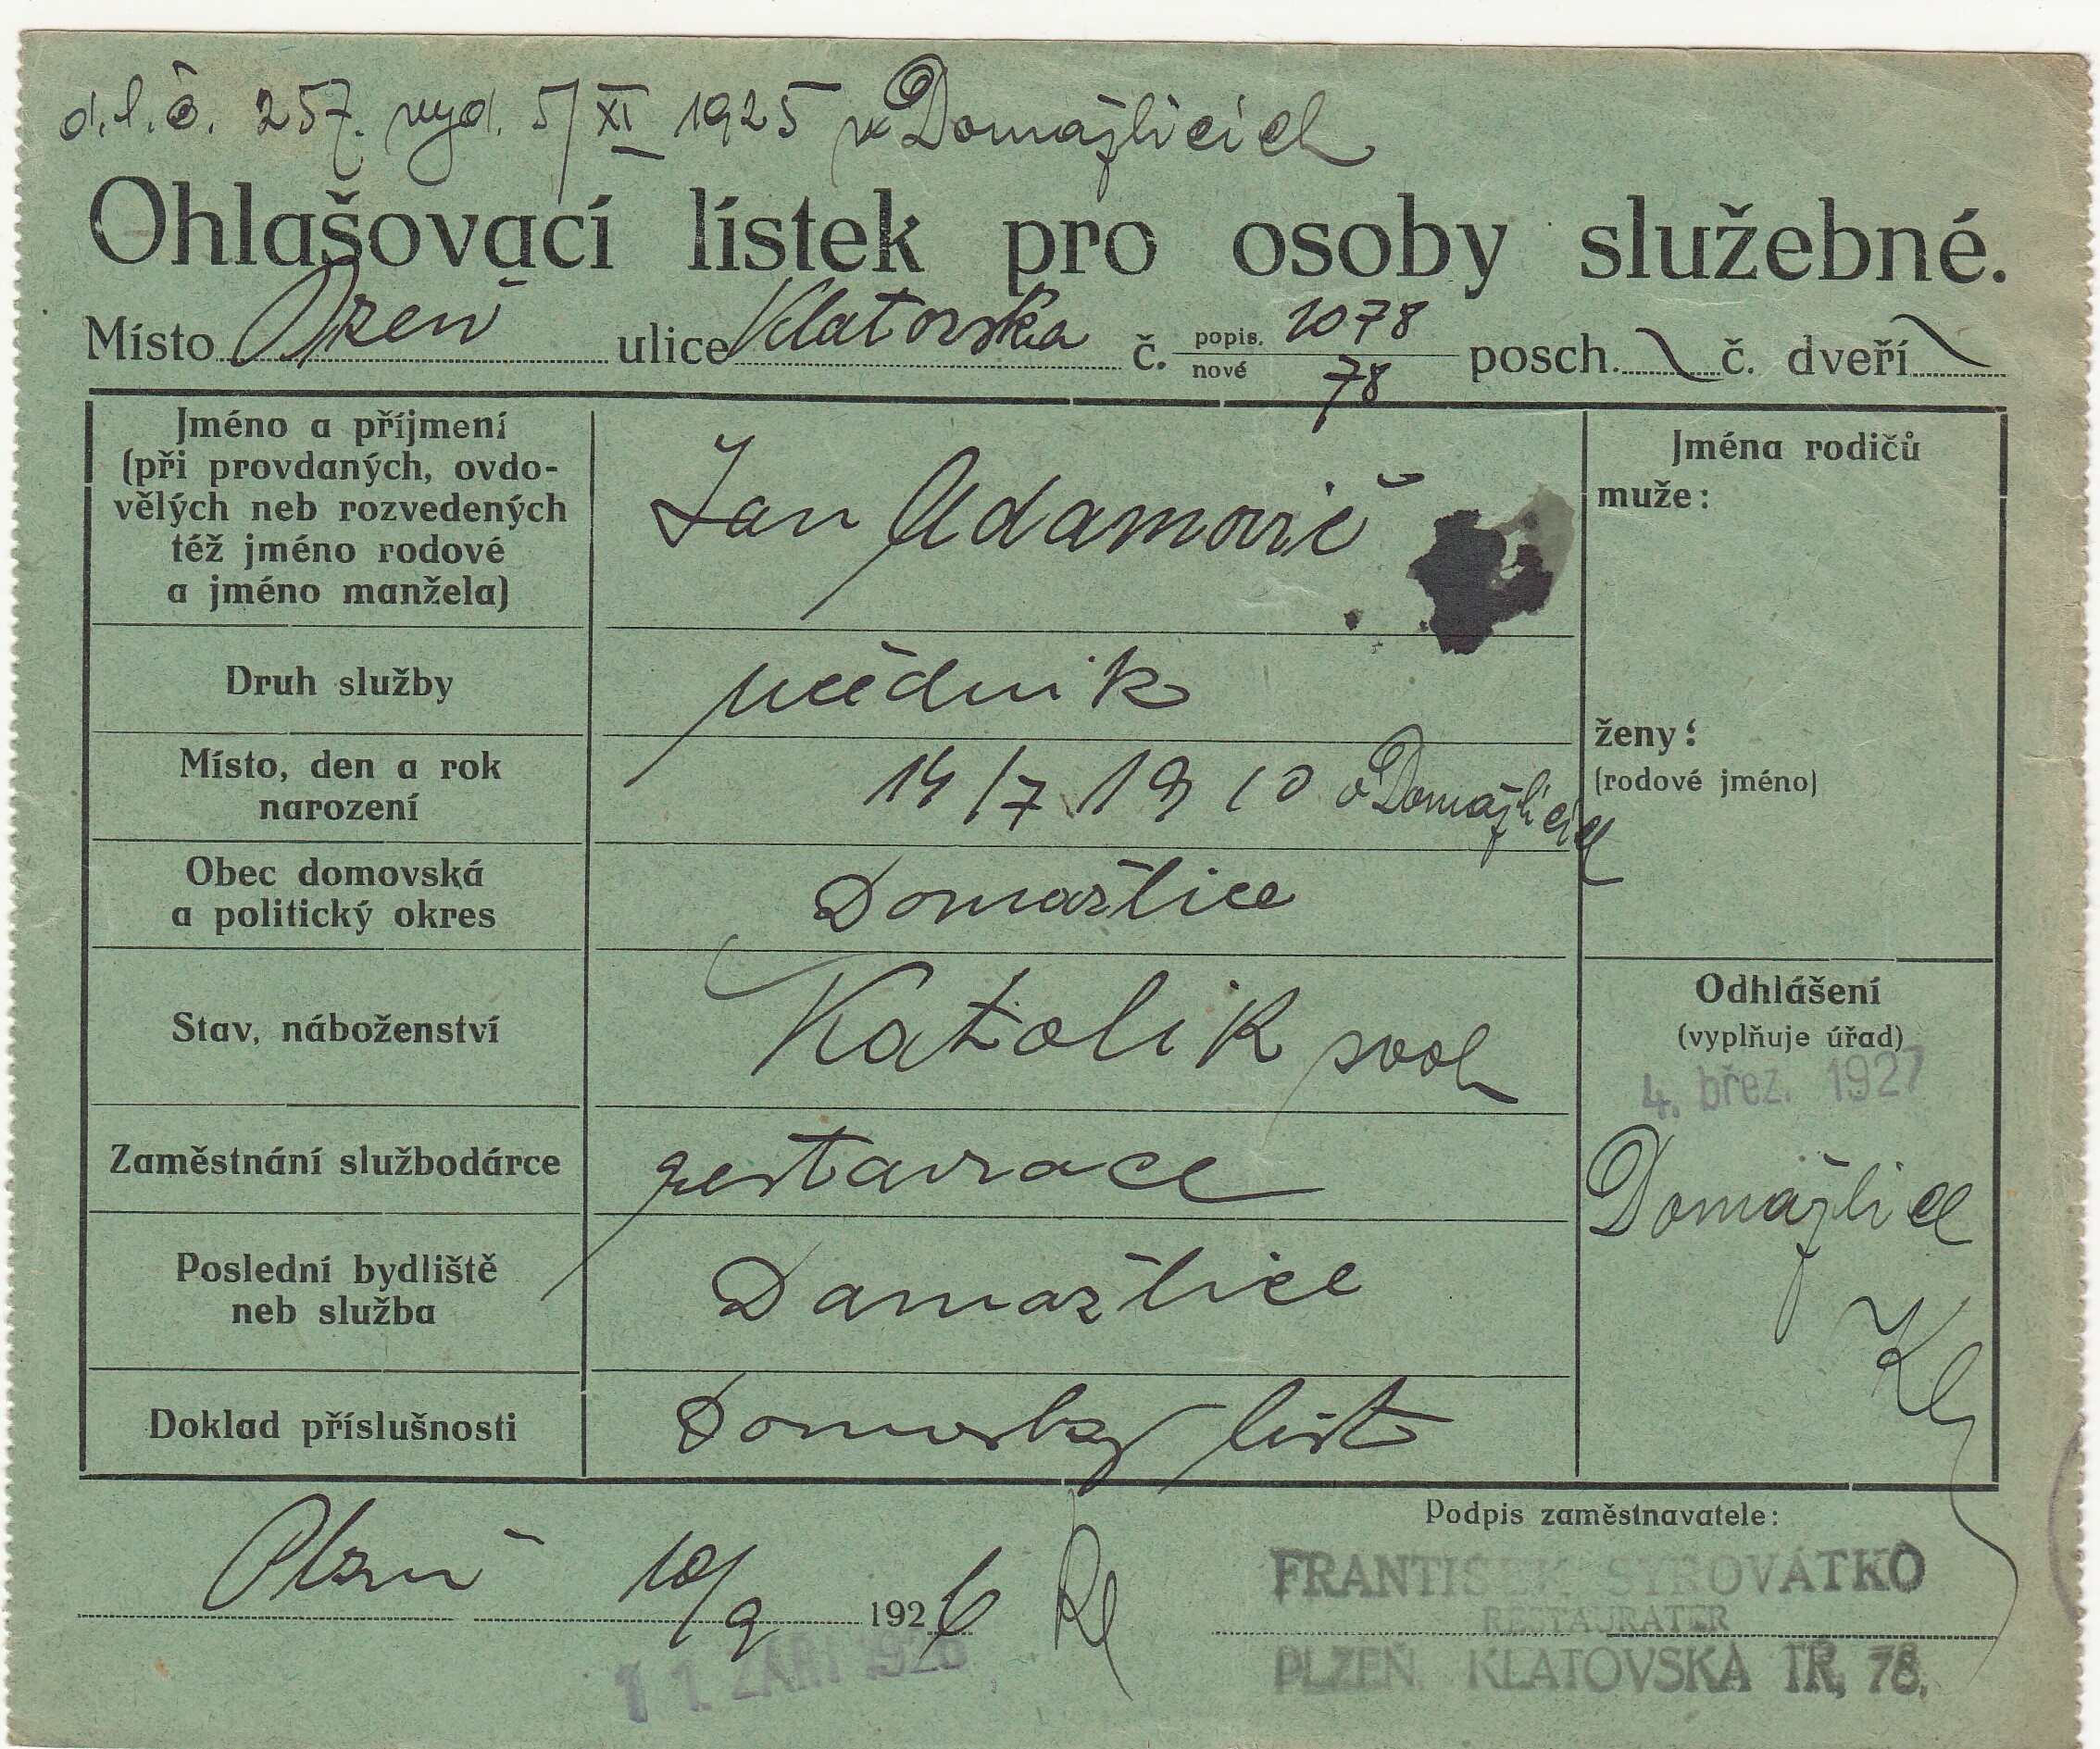 d.l.č. 257. vyd. 5/XI 1925 v Domažlicích
Ohlašovací lístek pro osoby služebné.
Místo Plzeň ulice Klatovska č. popis. 1078 nové 78 posch. č. dveří
Jméno a příjmení
(při provdaných, ovdo-
vělých neb rozvedených
též jméno rodové
a jméno manžela)
Jan Adamovič
Jména rodičů
muže:
ženy:
(rodové jméno)
Druh služby
učedník
Místo, den a rok
narození
14/7 1910 v Domažlicích
Obec domovská
a politický okres
Domažlice
Stav, náboženství
Katolik svob
Zaměstnání službodárce
restaurace
Poslední bydliště
neb služba
Damažlice
Doklad příslušnosti
Domovský list
Odhlášení
(vyplňuje úřad)
4. břez. 1927
Domažlice
Kl
Plzni 10/9 1926 Kl
11. ZÁŘÍ 1926
Podpis zaměstnavatele:
FRANTIŠEK SYROVÁTKO
RESTAURATER
PLZEŇ, KLATOVSKÁ TŘ. 78.